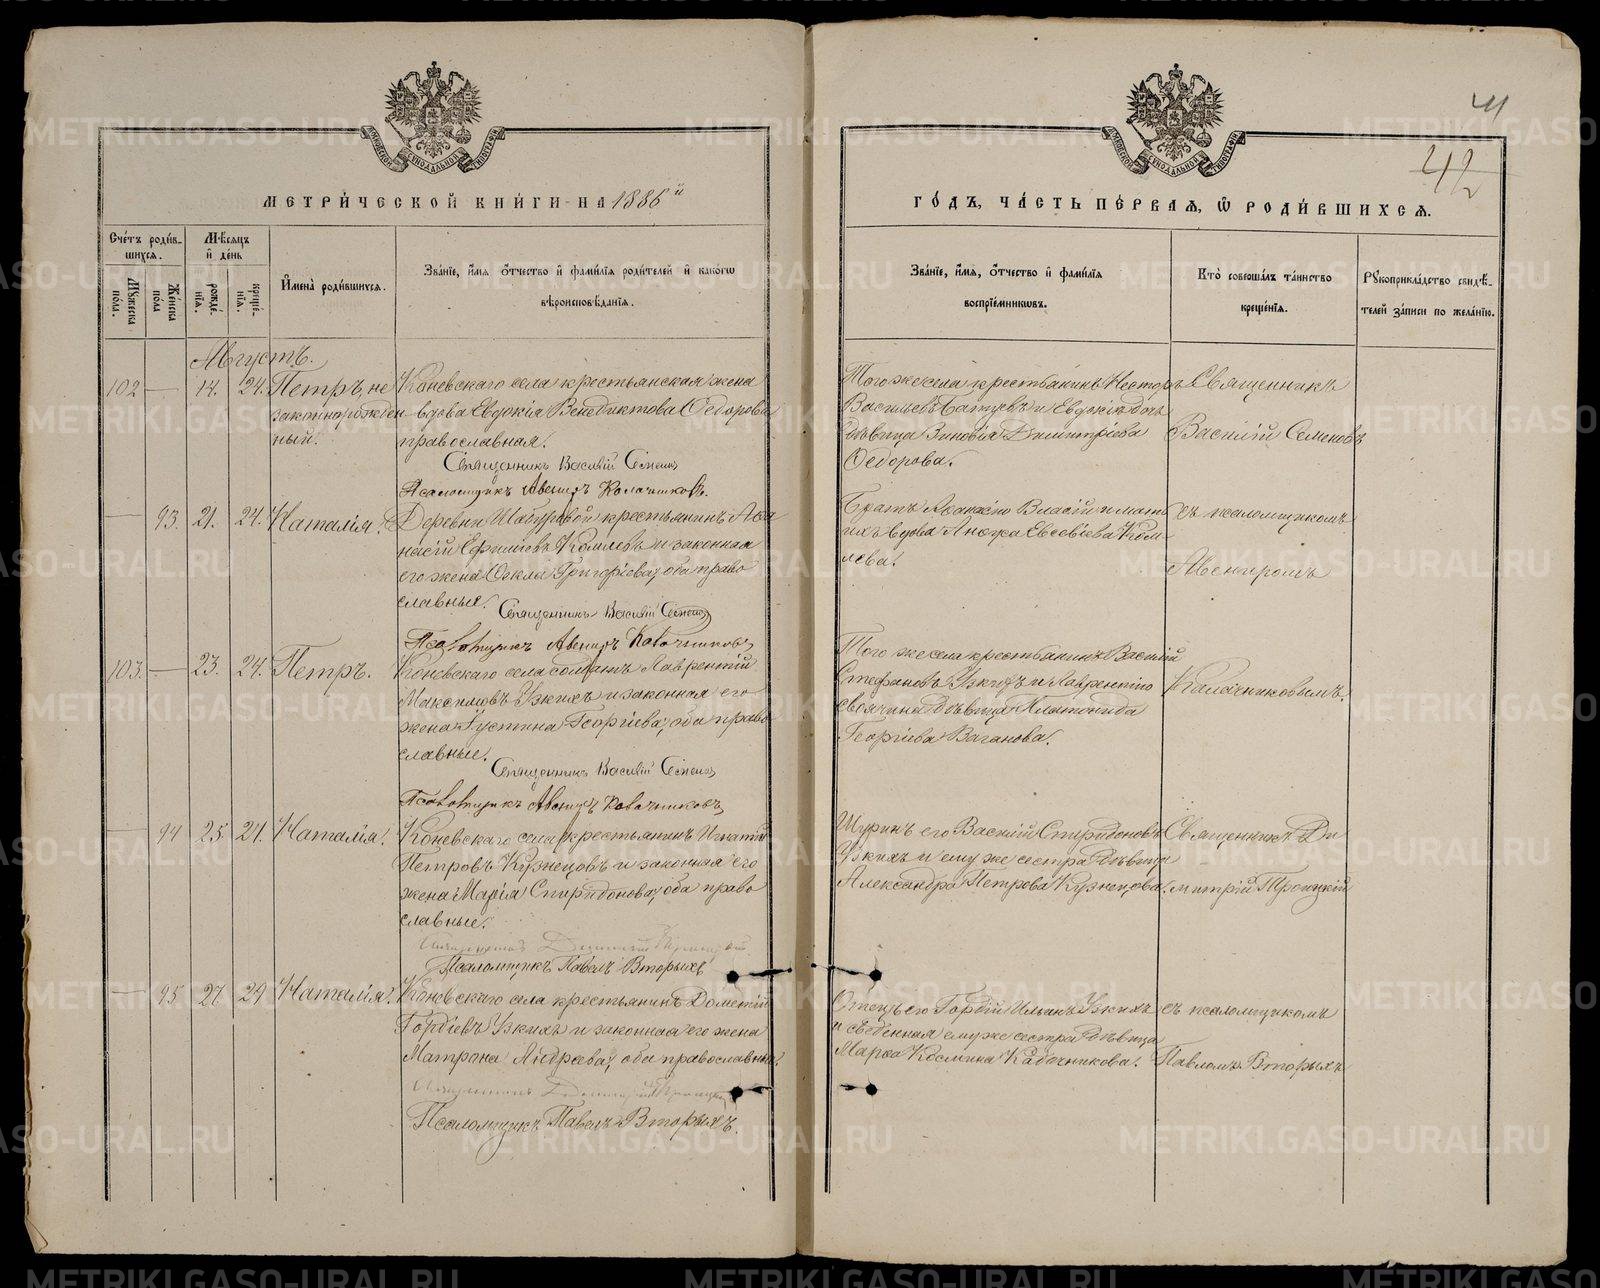 41
42
МЕТРИ́ЧЕСКОЙ КНИ́ГИ НА 1886й
ГО́ДЪ, ЧА́СТЬ ПЕ́РВАЯ, Ѡ РОДИ́ВШИХСЯ.
Сче́тъ роди́в-
шихся.
Мꙋ́жеска
пола.
Же́нска
пола
Мѣ́сяцъ
й де́нь
рожде́-
нїя.
креще́-
нїя.
И҆мена̀ роди́вшихся.
Зва́нїе, и҆́мя ѻ҆́тчество и҆ фами́лїѧ роди́телей и҆ како́гѡ
вѣроисповѣ́данїѧ.
Зва́нїе, и҆́мя, ѻ҆́тчество и҆ фами́лїѧ
воспрїе́мникѡвъ.
Кто̀ соверша́лъ та́инство
креще́нїя.
Рꙋкоприкла́дство свидѣ́-
телей за́писи по жела́нїю.
Августъ.
102 — 14. 24. Петръ, не
законнорожден
ный.
Коневскаго села крестьянская жена
вдова Евдокія Венедиктова Ѳедорова
православная.
Священникъ Василій Семенов
Псаломщикъ Авениръ Калачниковъ.
Того же села крестьянинъ Несторъ
Васильевъ и Евдокіи дочь
дѣвица Зиновія Димитріева
Ѳедорова.
Священникъ
Василій Семеновъ
— 93. 21. 24. Наталія.
Деревни крестьянинъ Аѳа
насій Ефимовъ Комлевъ и законная
его жена Ѳекла Григоріева, оба право
славные.
Священникъ Василій Семенов
Псаломщикъ Авениръ Калачниковъ
Братъ Аѳанасію Власій и мать
ихъ вдова Евсевіева Ком
лева.
съ псаломщикомъ
Авениромъ
103. — 23. 24. Петръ.
Коневскаго села солдатъ Лаврентій
Максимовъ Узкихъ и законная его
жена Іустина Георгіева, оба право
славные.
Священникъ Василій Семенов
Псаломщикъ Авениръ Калачниковъ
Того же села крестьянинъ Василій
Стефановъ Узкихъ и Лаврентію
своячина дѣвица Платонида
Георгіева Ваганова.
Калачниковымъ.
— 94 25 27. Наталія.
Коневскаго села крестьянинъ Игнатій
Петровъ Кузнецовъ и законная его
жена Марія Спиридонова, оба право
славные.
Священникъ Димитрій Троицкій
Псаломщикъ Павелъ Вторыхъ
Шуринъ его Василій Спиридоновъ
Узкихъ и ему же сестра дѣвица
Александра Петрова Кузнецова.
Священникъ Ди
митрій Троицкій
— 95 27. 29 Наталія.
Коневскаго села крестьянинъ Дометій
Гордіевъ Узкихъ и законная его жена
Матрона Андреева, оба православные.
Священникъ Димитрій Троицкій
Псаломщикъ Павелъ Вторыхъ.
Отецъ его Гордій Ильинъ Узкихъ
и сведенная ему же сестра дѣвица
Марѳа Козмина
съ псаломщикомъ
Павломъ Вторыхъ
METRIKI.GASO-URAL.RU